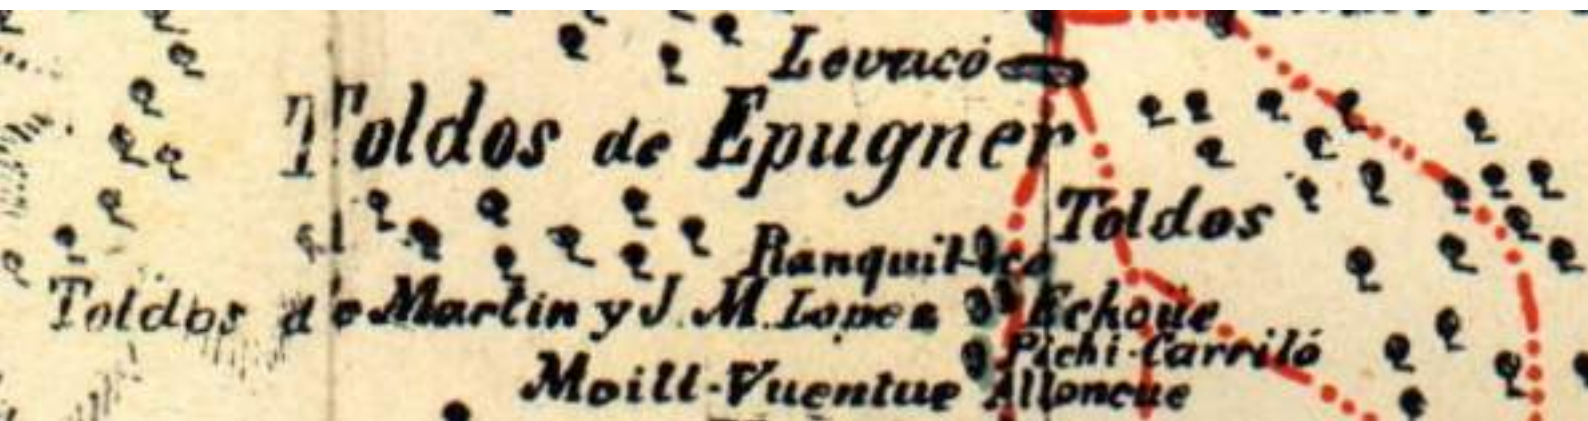 Levucó
Toldos de Epugner
Toldos
Ranquil-co
Toldos de Martin y J. M. Lopes
Echoue
Pichi-Carriló
Moill-Vuentue
Alloncue